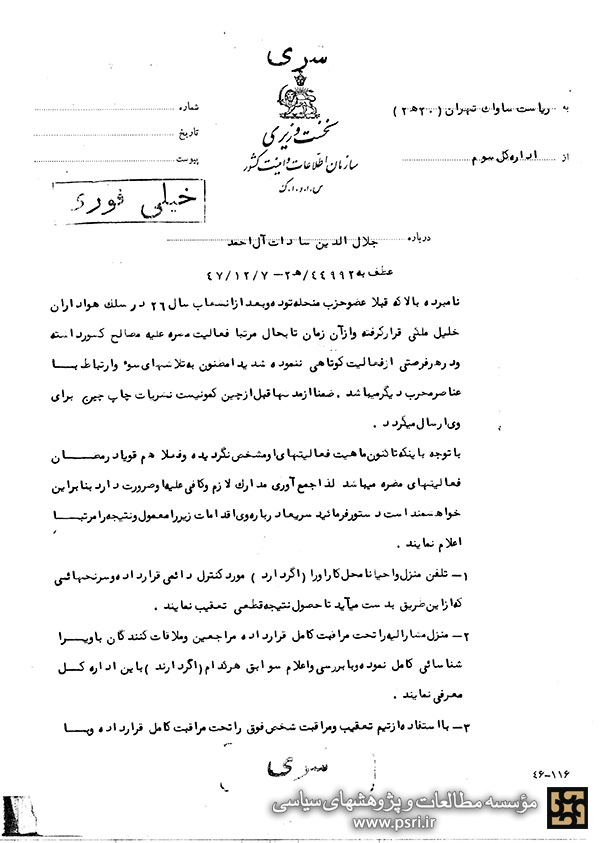 سری
به ریاست ساواک تهران (۲۰ هـ ۲)
از اداره کل سوم
نخست وزیری
سازمان اطلاعات و امنیت کشور
س.ا.و.ا.ک
شماره
تاریخ
پیوست
خیلی فوری
درباره جلال الدین سادات آل احمد
عطف به ۴۴۹۹۲/هـ۲-۴۷/۱۲/۷
نامبرده بالا که قبلا عضو حزب منحله توده و بعد از انشعاب سال ۲۶ در سلک هواداران
خلیل ملکی قرار گرفته و از آن زمان تا بحال مرتبا فعالیت مضره علیه مصالح کشور داشته
و در هر فرصتی از فعالیت کوتاهی ننموده شدیدا مظنون به تلاشهای سوء و ارتباط با
عناصر مخرب دیگر میباشد . ضمنا از مدتها قبل از چین کمونیست نشریات چاپ چین برای
وی ارسال میگردد .
با توجه باینکه تاکنون ماهیت فعالیتهای او مشخص نگردیده و فعلا هم قویا در مظان
فعالیتهای مضره میباشد لذا جمع آوری مدارک لازم و کافی علیه او ضرورت دارد بنابراین
خواهشمند است دستور فرمائید سریعا درباره وی اقدامات زیر را معمول و نتیجه را مرتبا
اعلام نمایند .
۱- تلفن منزل و احیانا محل کار او را (اگر دارد) مورد کنترل دائمی قرار داده و سرنخهائی
که از این طریق بدست میآید تا حصول نتیجه قطعی تعقیب نمایند .
۲- منزل مشارالیه را تحت مراقبت کامل قرار داده مراجعین و ملاقات کنندگان با ویرا
شناسائی کامل نموده و با بررسی و اعلام سوابق هر کدام (اگر دارند) باین اداره کل
معرفی نمایند .
۳- با استفاده از تیم تعقیب و مراقبت شخص فوق را تحت مراقبت کامل قرار داده و با
سری
۴۶-۱۱۶
مؤسسه مطالعات و پژوهشهای سیاسی
www.psri.ir